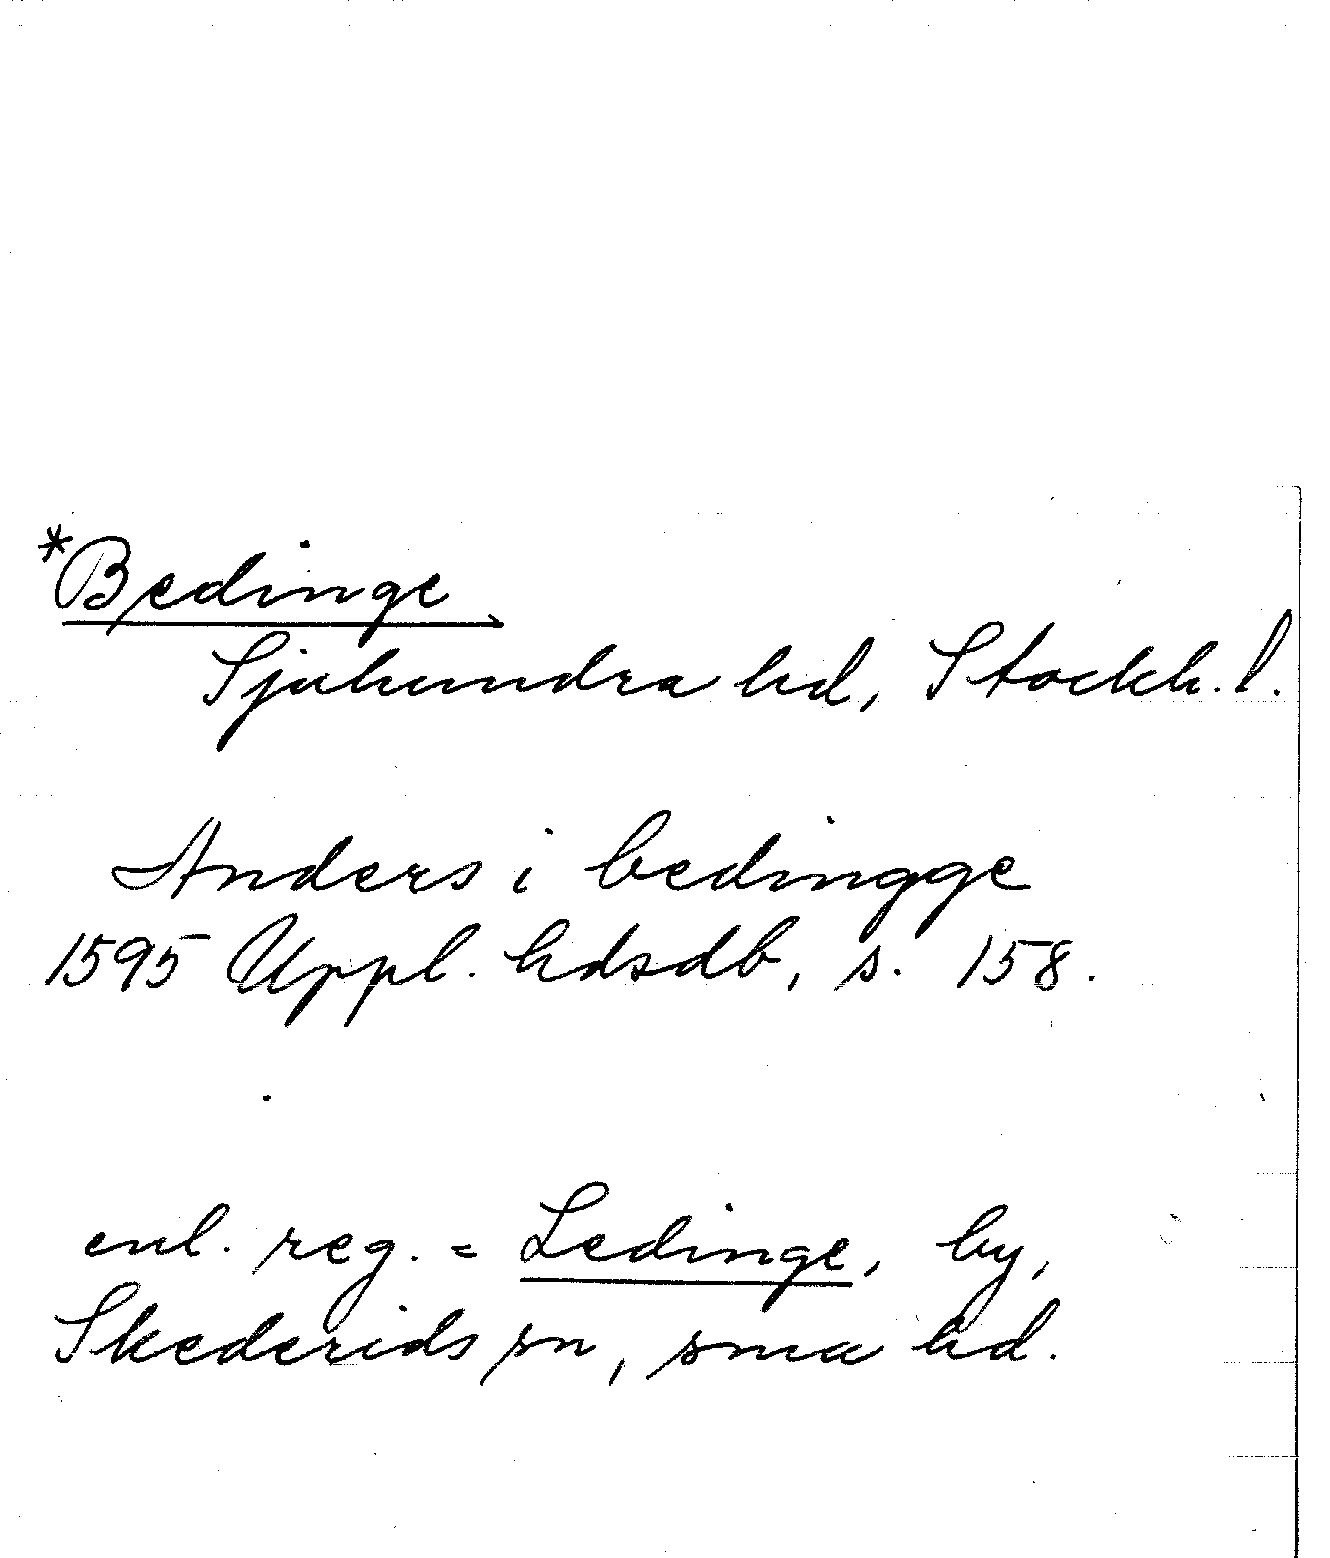 *Bedinge
Sjuhundra hd, Stockh. l.
Anders i bedingge
1595 Uppl. hdsdb, s. 158.
enl. reg. = Ledinge, by,
Skederids sn, sma hd.